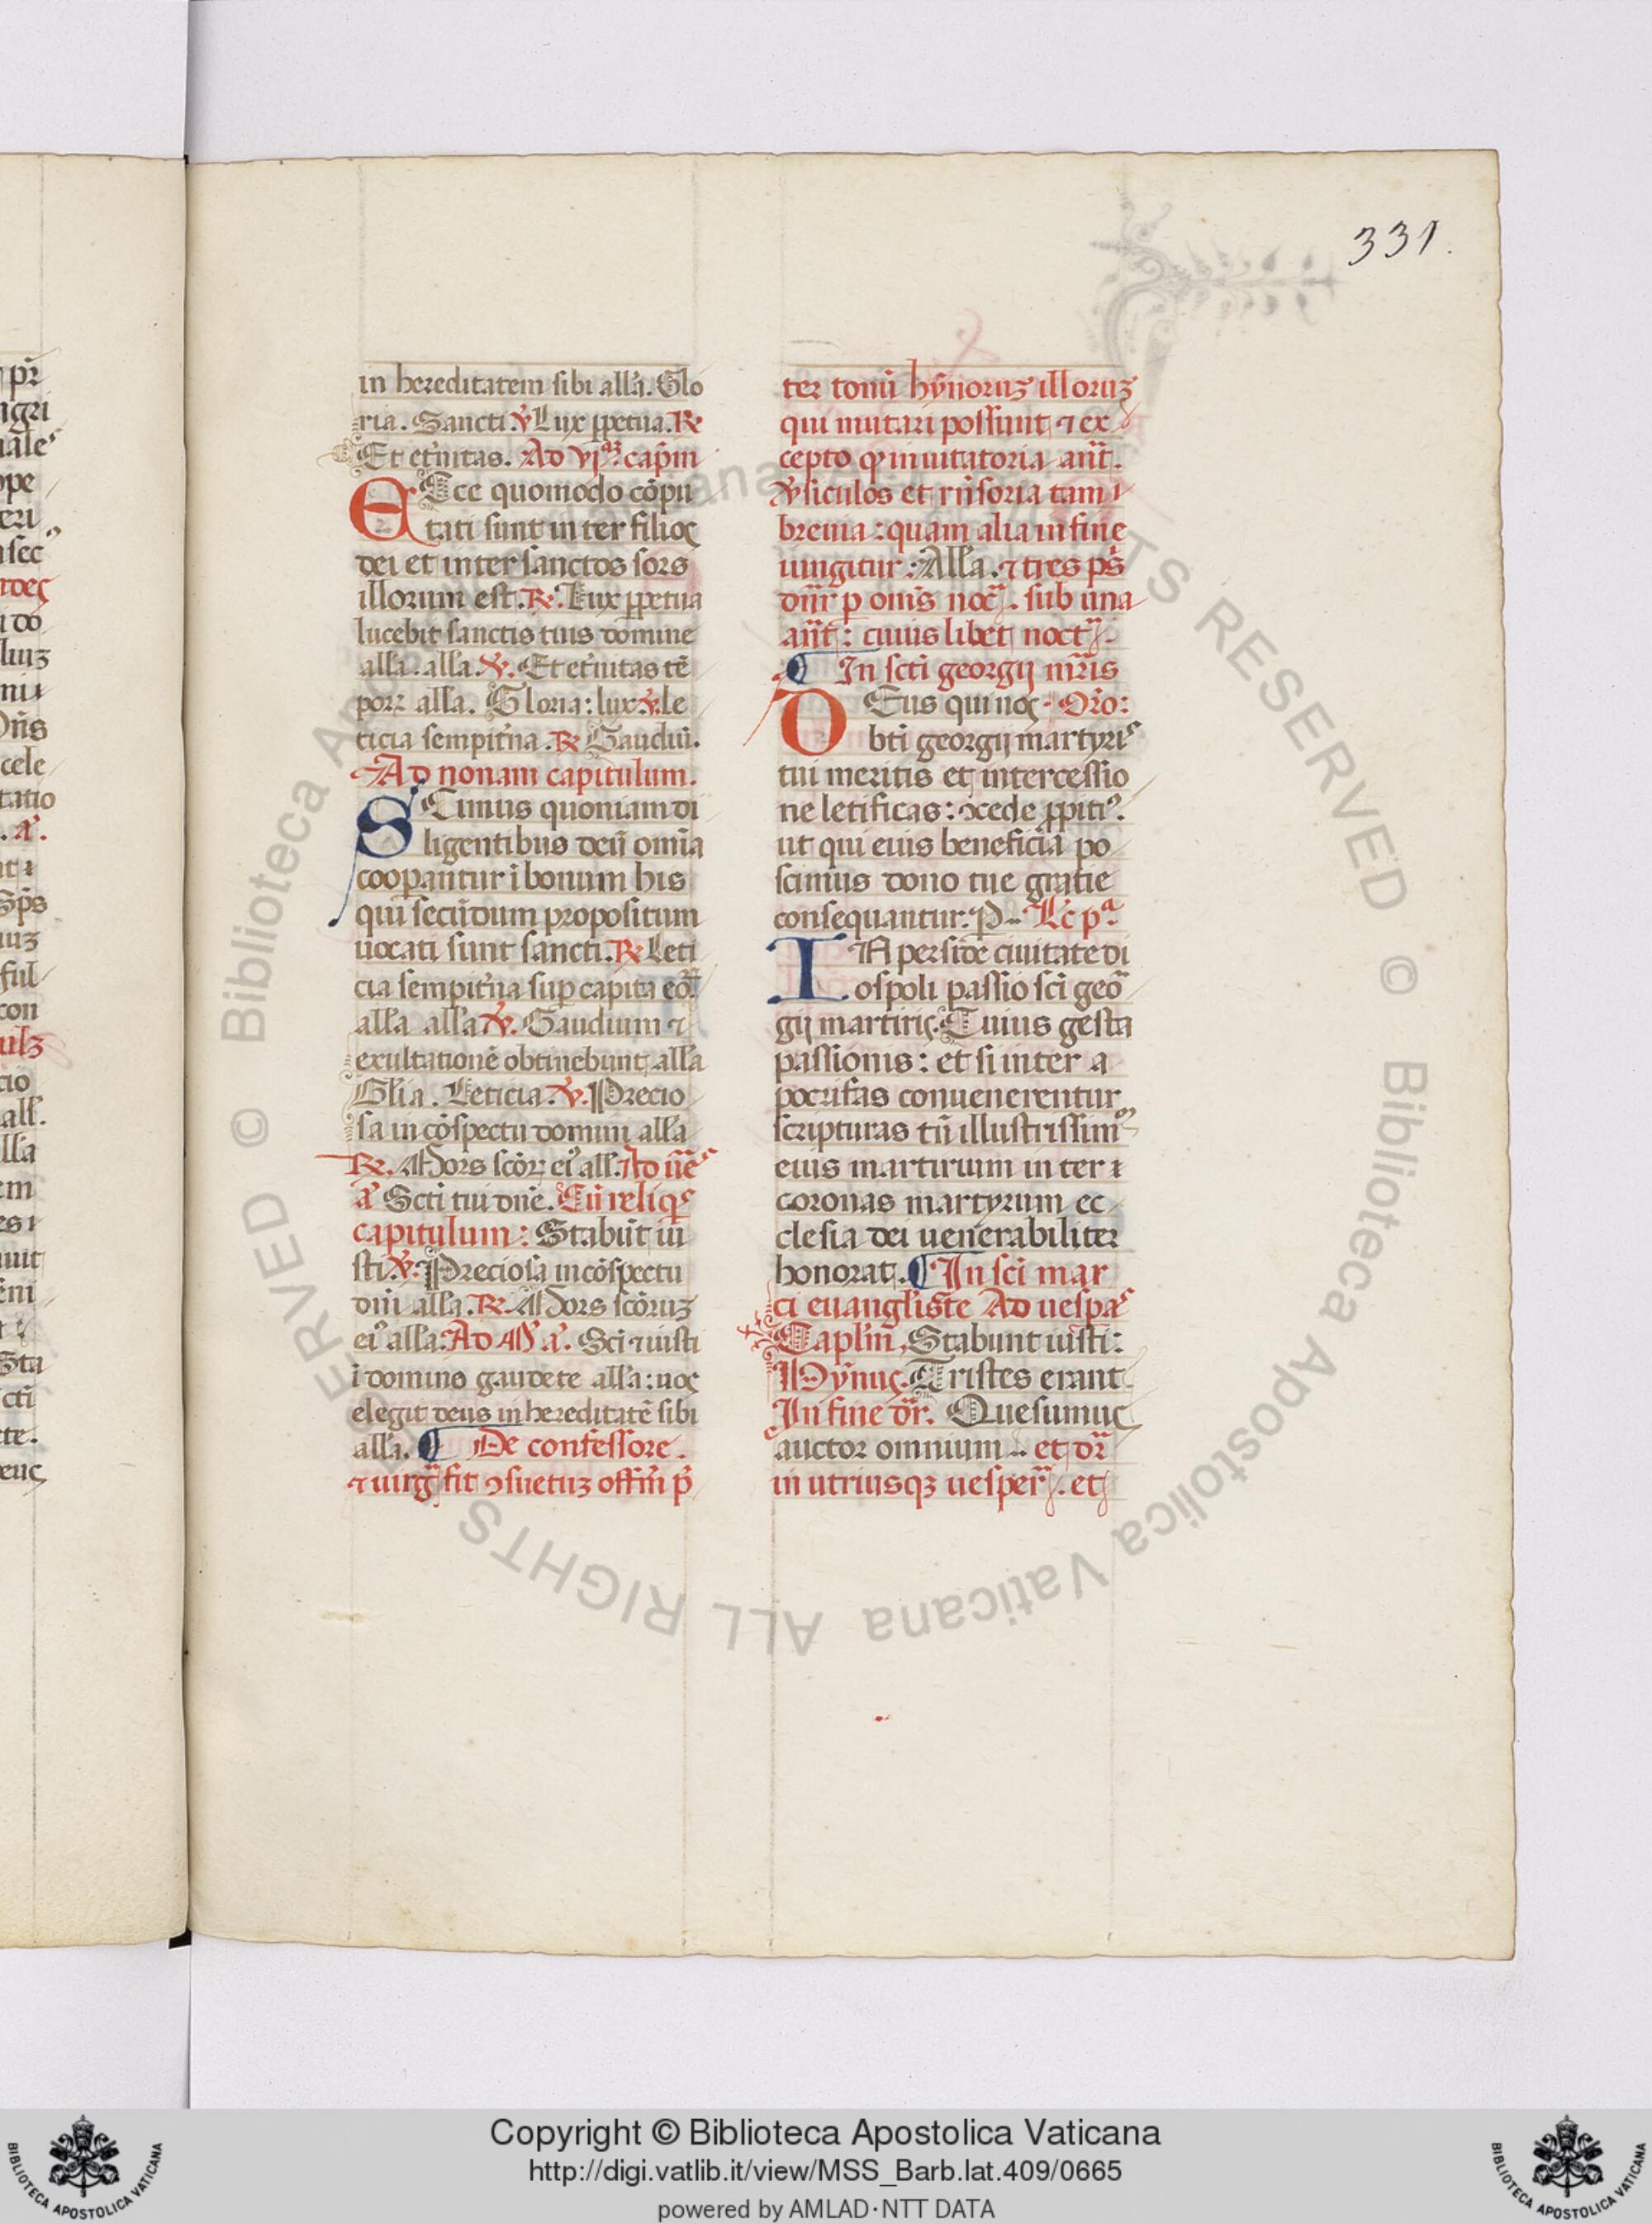 331.
in hereditatem sibi all'a. Glo
ria. Sancti. V Lux ꝑpetua. R
Et et'nitas. Ad vjᵃꝫ. cap̄m
ECce quomodo cōpu
tati sunt inter filios
dei et inter sanctos sors
illorum est. R. Lux ꝑpetua
lucebit sanctis tuis domine
all'a. all'a. V. Et et'nitas tē
porꝝ all'a. Gloria: lux. V. le
ticia sempit'na. R Gaudiū.
Ad nonam capitulum.
SCimus quoniam di
ligentibus deū omīa
cooꝑantur ī bonum his
qui secūdum propositum
uocati sunt sancti. R Leti
cia sempit'na suꝑ capita eoꝝ
all'a all'a V. Gaudium ⁊
exultationē obtinebunt all'a
Gl'ia. Leticia. V. Precio
sa in cōspectu domini all'a
R. Mors scōꝝ ei' all'. Ad ūe's
a'. Scti tui dn̄e. Cū reliq's
capitulum: Stabūt iu
sti. V. Preciosa in cōspectu
dn̄i all'a. R. Mors scōruꝫ
ei' all'a. Ad M' a'. Sci ⁊ iusti
ī domino gaudete all'a: uos
elegit deus in hereditatē sibi
all'a. ¶ De confessore.
⁊ uirgᵃ fit ꝯsuetuꝫ offm̄ p̄
ter tonū hȳnoruꝫ illoruꝫ
qui mutari possunt ⁊ ex
cepto ꝙ inuitatoria an̄t.
V'siculos et rn̄soria tam
breuia: quam alia in fine
iungitur: All'a. ⁊ tres ps̄
dn̄r p om̄s noc̄. sub una
an̄t: cuius libet noct.
¶ In scti georgij mr̄is
DEus qui nos Or̄o:
bt̄i georgij martyris
tui meritis et intercessio
ne letificas: ꝯcede ꝓpiti'.
ut qui eius beneficia po
scimus dono tue gratie
consequantur. P... Lc̄ pᵃ.
IN perside ciuitate di
ospoli passio sc̄i geo
gij martiris. Cuius gesta
passionis: et si inter a
pocrifas conuenerentur
scripturas tn̄ illustrissim
eius martirium inter
coronas martyrum ec
clesia dei uenerabiliter
honorat. ¶ In sc̄i mar
ci euangl'iste Ad uespᵃs
Capl'm, Stabunt iusti:
Hȳnus. Tristes erant.
In fine dr̄. Quesumus
auctor omnium... et dr̄
in utriusqꝫ uesper. et
Copyright © Biblioteca Apostolica Vaticana
http://digi.vatlib.it/view/MSS_Barb.lat.409/0665
powered by AMLAD·NTT DATA